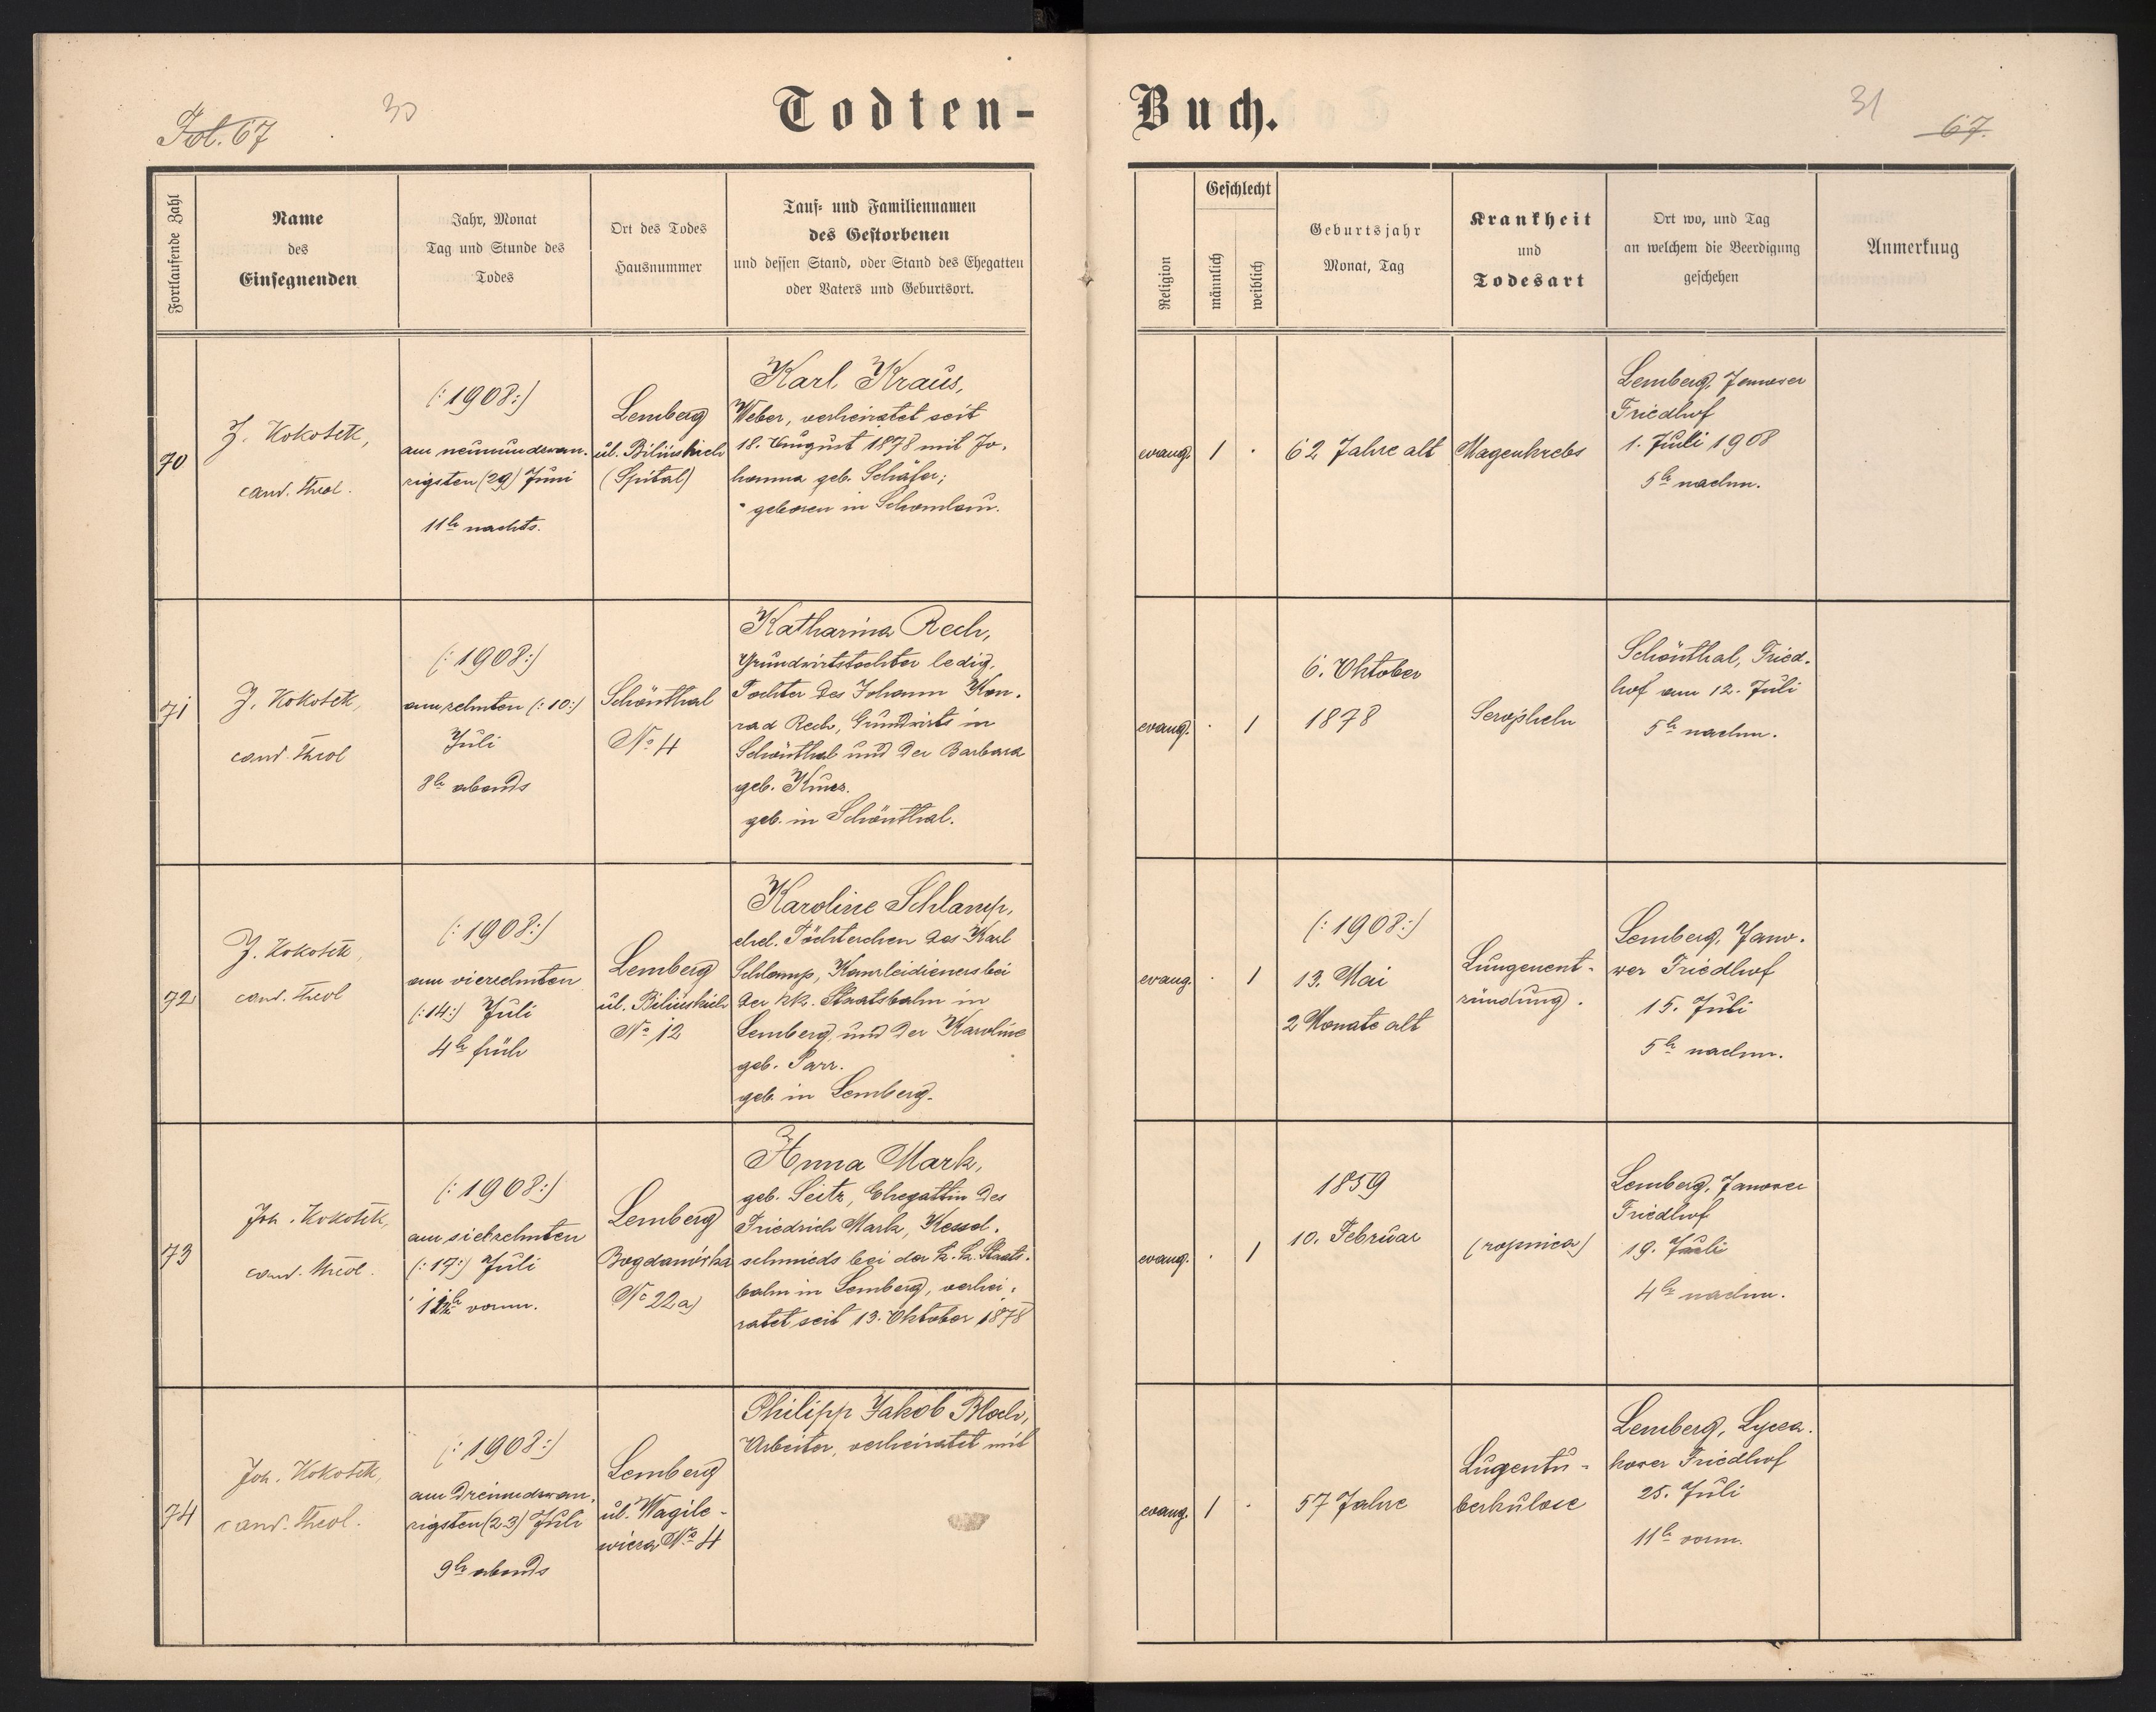 Fol. 67
30
Todten-
Buch.
31
67.
Fortlaufende Zahl
Name
des
Einsegnenden
Jahr, Monat
Tag und Stunde des
Todes
Ort des Todes
Hausnummer
Tauf- und Familiennamen
des Gestorbenen
und dessen Stand, oder Stand des Ehegatten
oder Vaters und Geburtsort.
Religion
Geschlecht
männlich
weiblich
Geburtsjahr
Monat, Tag
Krankheit
und
Todesart
Ort wo, und Tag
an welchem die Beerdigung
geschehen
Anmerkung
70
J. Kokotek,
cand. theol.
(: 1908:)
am neunundzwan-
zigsten (29) Juni
11h nachts.
Lemberg
ul. Bilinskich
(Spital)
Karl Kraus,
Weber, verheiratet seit
18. August 1878 mit Jo-
hanna geb. Schäfer;
geboren in
evang.
1
.
62 Jahre alt
Magenkrebs
Lemberg, Janower
Friedhof
1. Juli 1908
5h nachm.
71
J. Kokotek,
cand. theol
(: 1908:)
am zehnten (: 10:)
Juli
8h abends
Schönthal
No 4
Katharina Rech,
Grundwirtstochter ledig,
Tochter des Johann Kon-
rad Rech, Grundwirts in
Schönthal und der Barbara
geb. Kunz.
geb. in Schönthal.
evang.
.
1
6. Oktober
1878
Scropheln
Schönthal, Fried-
hof am 12. Juli
5h nachm.
72
J. Kokotek,
cand. theol
(: 1908:)
am vierzehnten
(: 14:) Juli
4h früh
Lemberg
ul. Bilinskich
No 12
Karoline Schlamp,
ehel. Töchterchen des Karl
Schlamp, Kanzleidieners bei
der kk. Staatsbahn in
Lemberg und der Karoline
geb. Parr.
geb. in Lemberg.
evang.
.
1
(: 1908:)
13. Mai
2 Monate alt
Lungenent-
zündung.
Lemberg, Jano-
wer Friedhof
15. Juli
5h nachm.
73
Joh. Kokotek,
cand. theol.
(: 1908:)
am siebzehnten
(: 17:) Juli
h vorm.
Lemberg
Bogdanówka
No 22a)
Anna Mark,
geb. Seitz, Ehegattin des
Friedrich Mark, Kessel-
schmieds bei der k. k. Staats-
bahn in Lemberg, verhei-
ratet seit 13. Oktober 1878
evang.
.
1
1859
10. Februar
(ropnica)
Lemberg, Janower
Friedhof
19. Juli
4h nachm.
74
Joh. Kokotek,
cand. theol.
(: 1908:)
am dreiundzwan-
zigsten (23) Juli
9h abends
Lemberg
ul. Wagile-
wicza No 4
Philipp Jakob Bloch,
Arbeiter, verheiratet mit
evang.
1
.
57 Jahre
Lugentu-
berkulose
Lemberg, Lycza-
kower Friedhof
25. Juli
11h vorm.